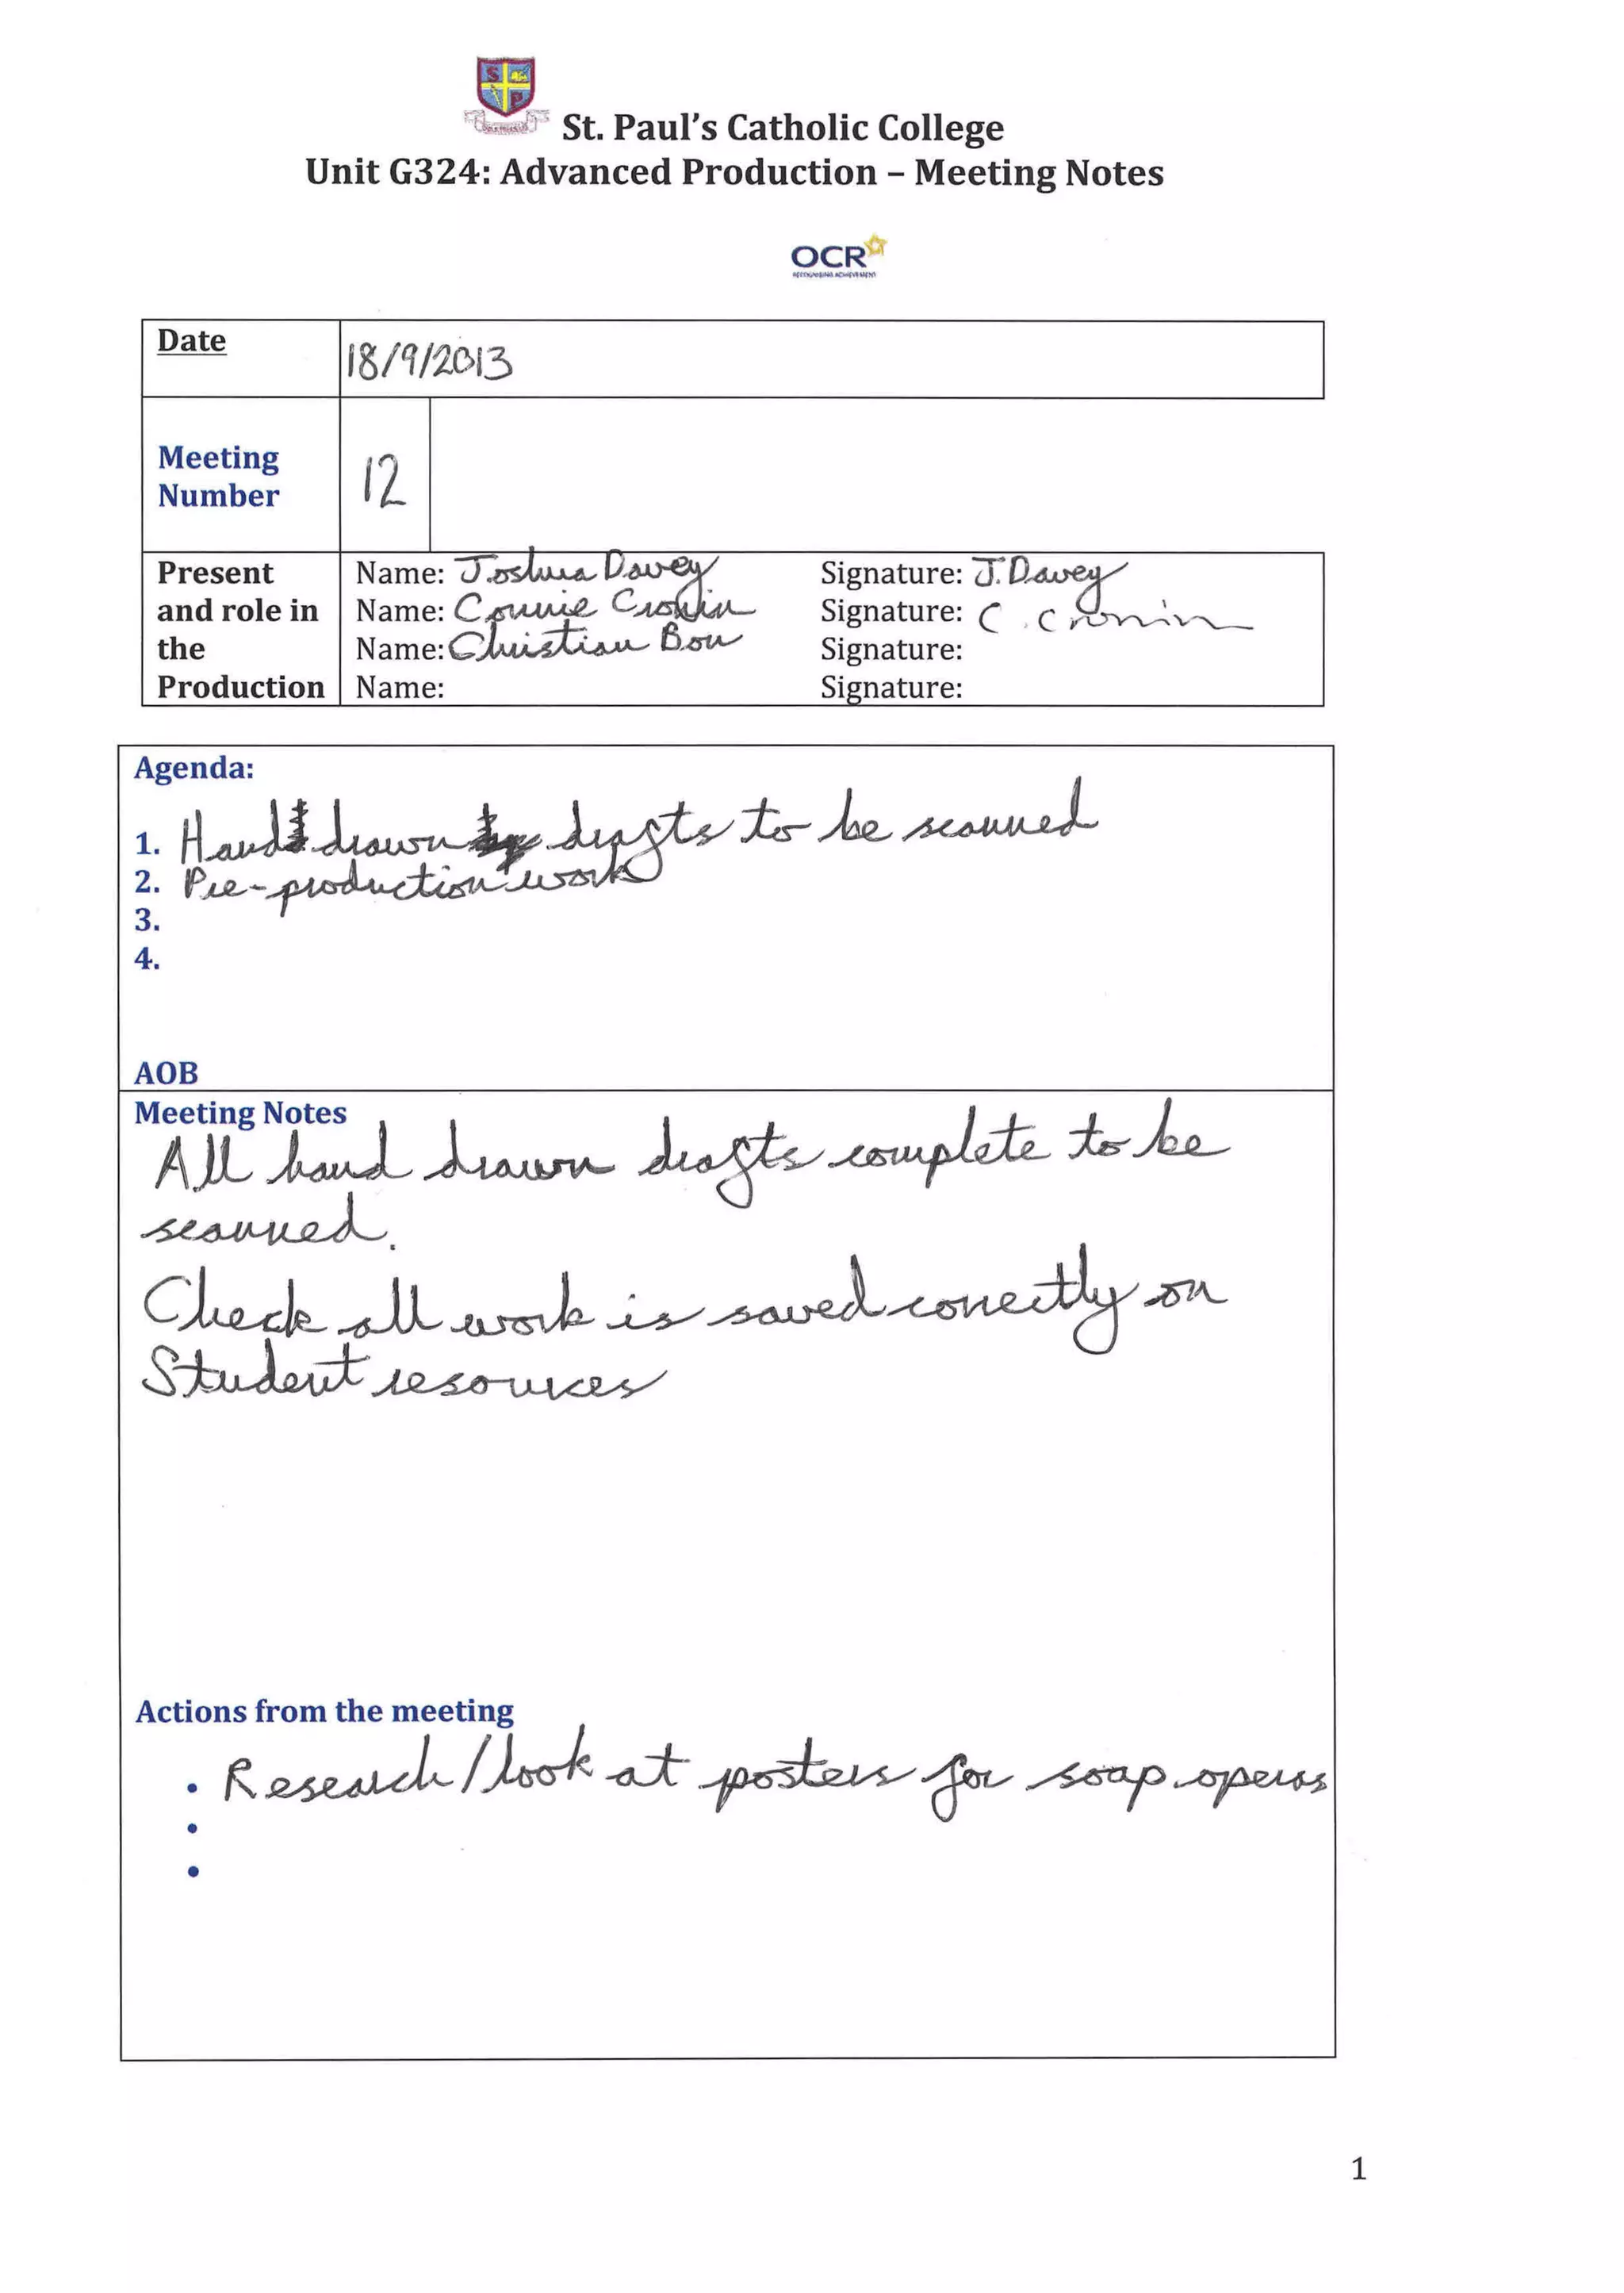 St. Paul's Catholic College
Unit G324: Advanced Production – Meeting Notes
OCR
RECOGNISING ACHIEVEMENT
Date 18/9/2013
Meeting Number 12
Present and role in the Production
Name: Joshua Davey Signature: J. Davey
Name: Connie Cronin Signature: C. Cronin
Name: Christian Bow Signature:
Name: Signature:
Agenda:
1. Hand drawn drafts to be scanned
2. Pre-production work
3.
4.
AOB
Meeting Notes
All hand drawn drafts complete to be
scanned.
Check all work is saved correctly on
Student resources
Actions from the meeting
• Research/look at posters for soap operas
•
•
1